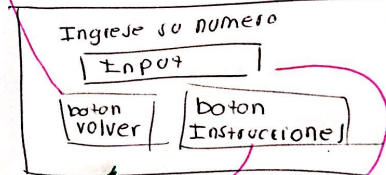 Ingrese su numero
Input
boton
volver
boton
Instrucciones